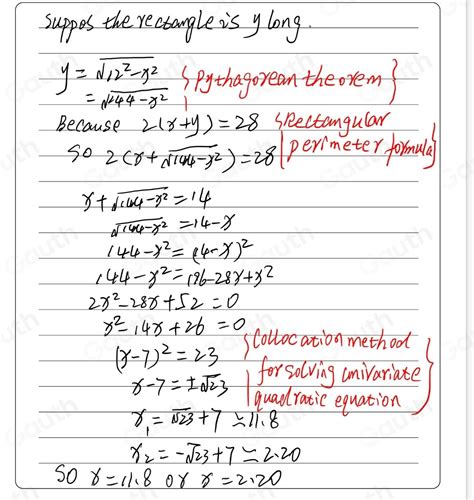 Suppos the rectangle is y long.
y = √12²-x²
= √144-x²
{ Pythagorean theorem }
Because 2(x+y) = 28
So 2(x+√144-x²) = 28
{ Rectangular perimeter formula }
x+√144-x² = 14
√144-x² = 14-x
144-x² = (4-x)²
144-x² = 196-28x+x²
2x²-28x+52 = 0
x²-14x+26 = 0
(x-7)² = 23
x-7 = ±√23
{ Collocation method
for solving univariate
quadratic equation }
x₁ = √23+7 ≃ 11.8
x₂ = -√23+7 ≃ 2.20
So x = 11.8 or x = 2.20
Gauth